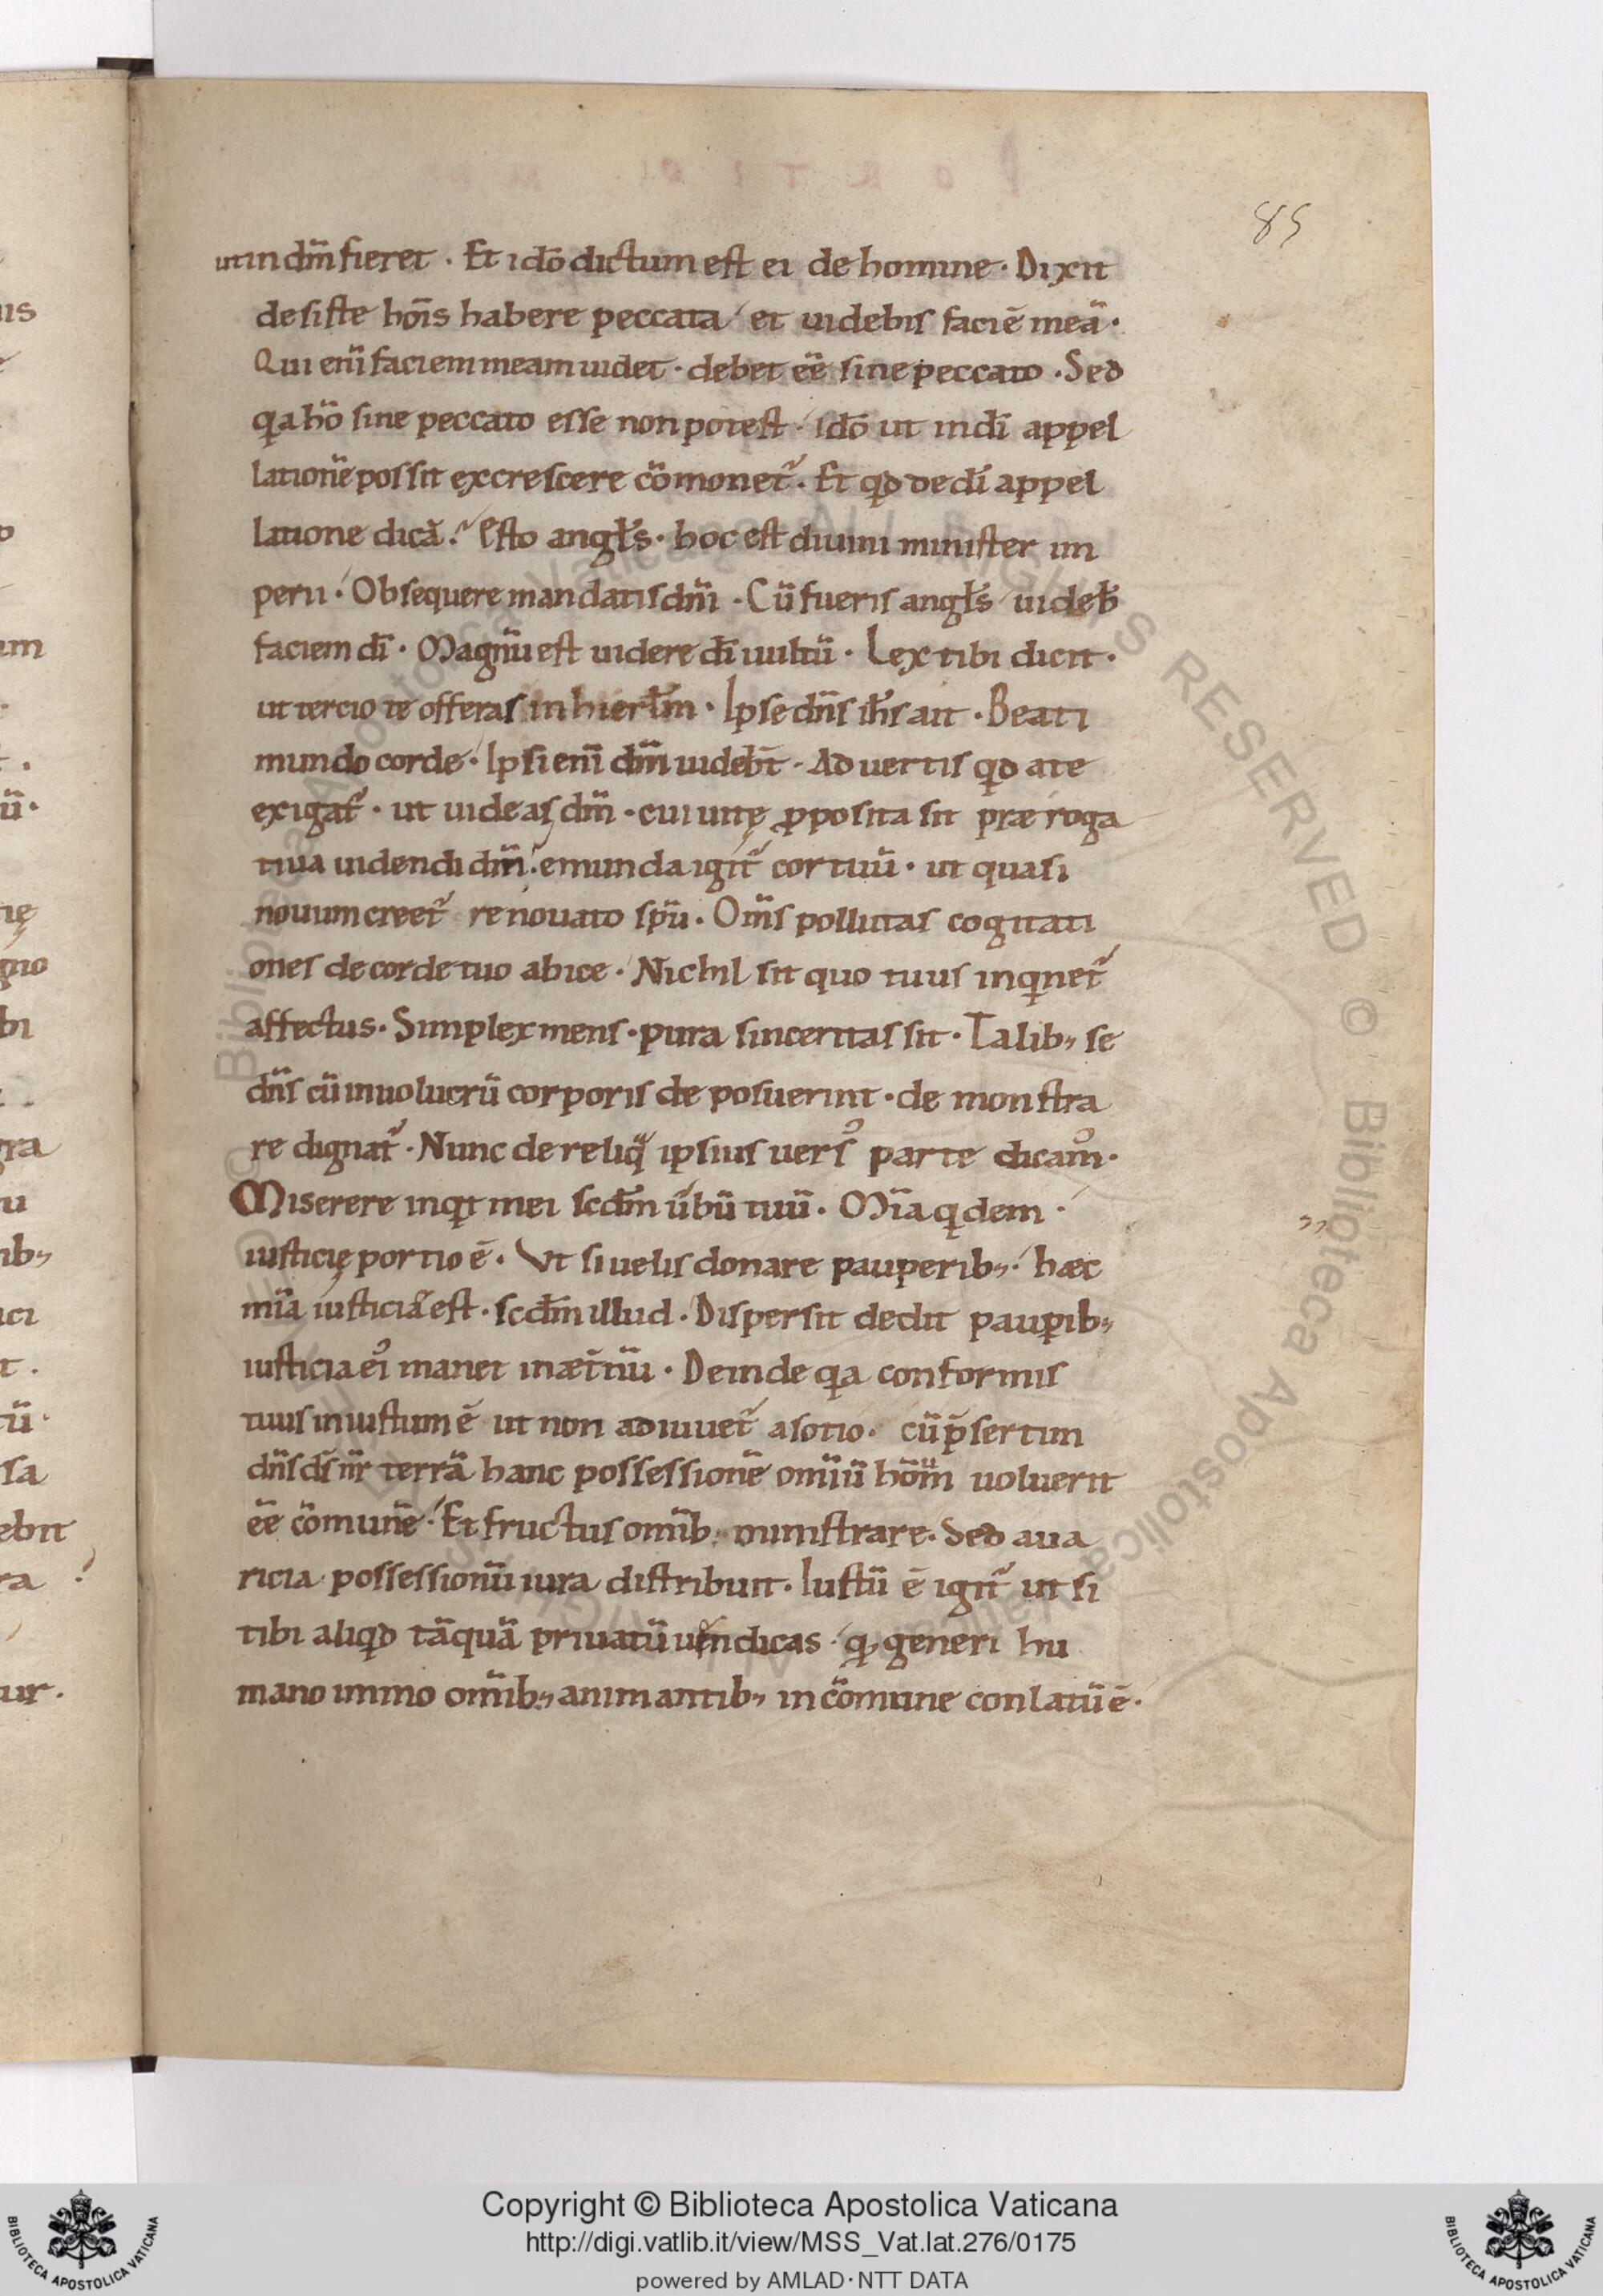 85
ut in dm̄ fieret · Et idō dictum est ei de homine · Dixit
desiste hoīs habere peccata et uidebis faciē meā ·
Qui eni faciem meam uidet · debet eē sine peccato · Sed
qa hō sine peccato esse non potest · idō ut in dī appel
lationē possit excrescere cōmonet᷑ · Et qd de dī appel
latione dicā · Esto angłs · hoc est diuini minister im
perii · Obsequere mandatis dnī · Cū fueris angłs uideb̄
faciem dī · Magnū est uidere dī uultū · Lex tibi dicit ·
ut tercio te offeras in hierłm · Ipse dn̄s ih̄s ait · Beati
mundo corde · Ipsi enī dm̄ uidebt̄ · Aduertis qd a te
exigat᷑ · ut uideas dm̄ · cui uitę ꝓposita sit præroga
tiua uidendi dm̄ · emunda igit᷑ cor tuū · ut quasi
nouum creet᷑ renouato spū · Om̄s pollutas cogitati
ones de corde tuo abice · Nichil sit quo tuus inqinet᷑
affectus · Simplex mens · pura sinceritas sit · Talib; se
dn̄s cū inuolucrū corporis deposuerint · demonstra
re dignat᷑ · Nunc de reliqa ipsius uersꝰ parte dicamꝰ ·
Miserere inqit mei scdm̄ ūbū tuū · Mīa qidem ·
iusticię portio ē · Ut si uelis donare pauperib; · hæc
mīa iusticia est · scdm̄ illud · Dispersit dedit paupib;
iusticia eiꝰ manet in æt̄nū · Deinde qa conformis
tuus iniustum ē ut non adiuuet᷑ a sotio · cū p̄sertim
dn̄s ds̄ nr̄ terrā hanc possessionē omniū hom̄ uoluerit
eē cōmunē · Et fructus omīb; ministrare · Sed aua
ricia possessionū iura distribuit · Iustū ē igit᷑ ut si
tibi aliqd tāquā priuatū uendicas · qd generi hu
mano immo omīb; animantib; in cōmune conlatū ē ·
Copyright © Biblioteca Apostolica Vaticana
http://digi.vatlib.it/view/MSS_Vat.lat.276/0175
powered by AMLAD·NTT DATA
BIBLIOTECA APOSTOLICA VATICANA
BIBLIOTECA APOSTOLICA VATICANA